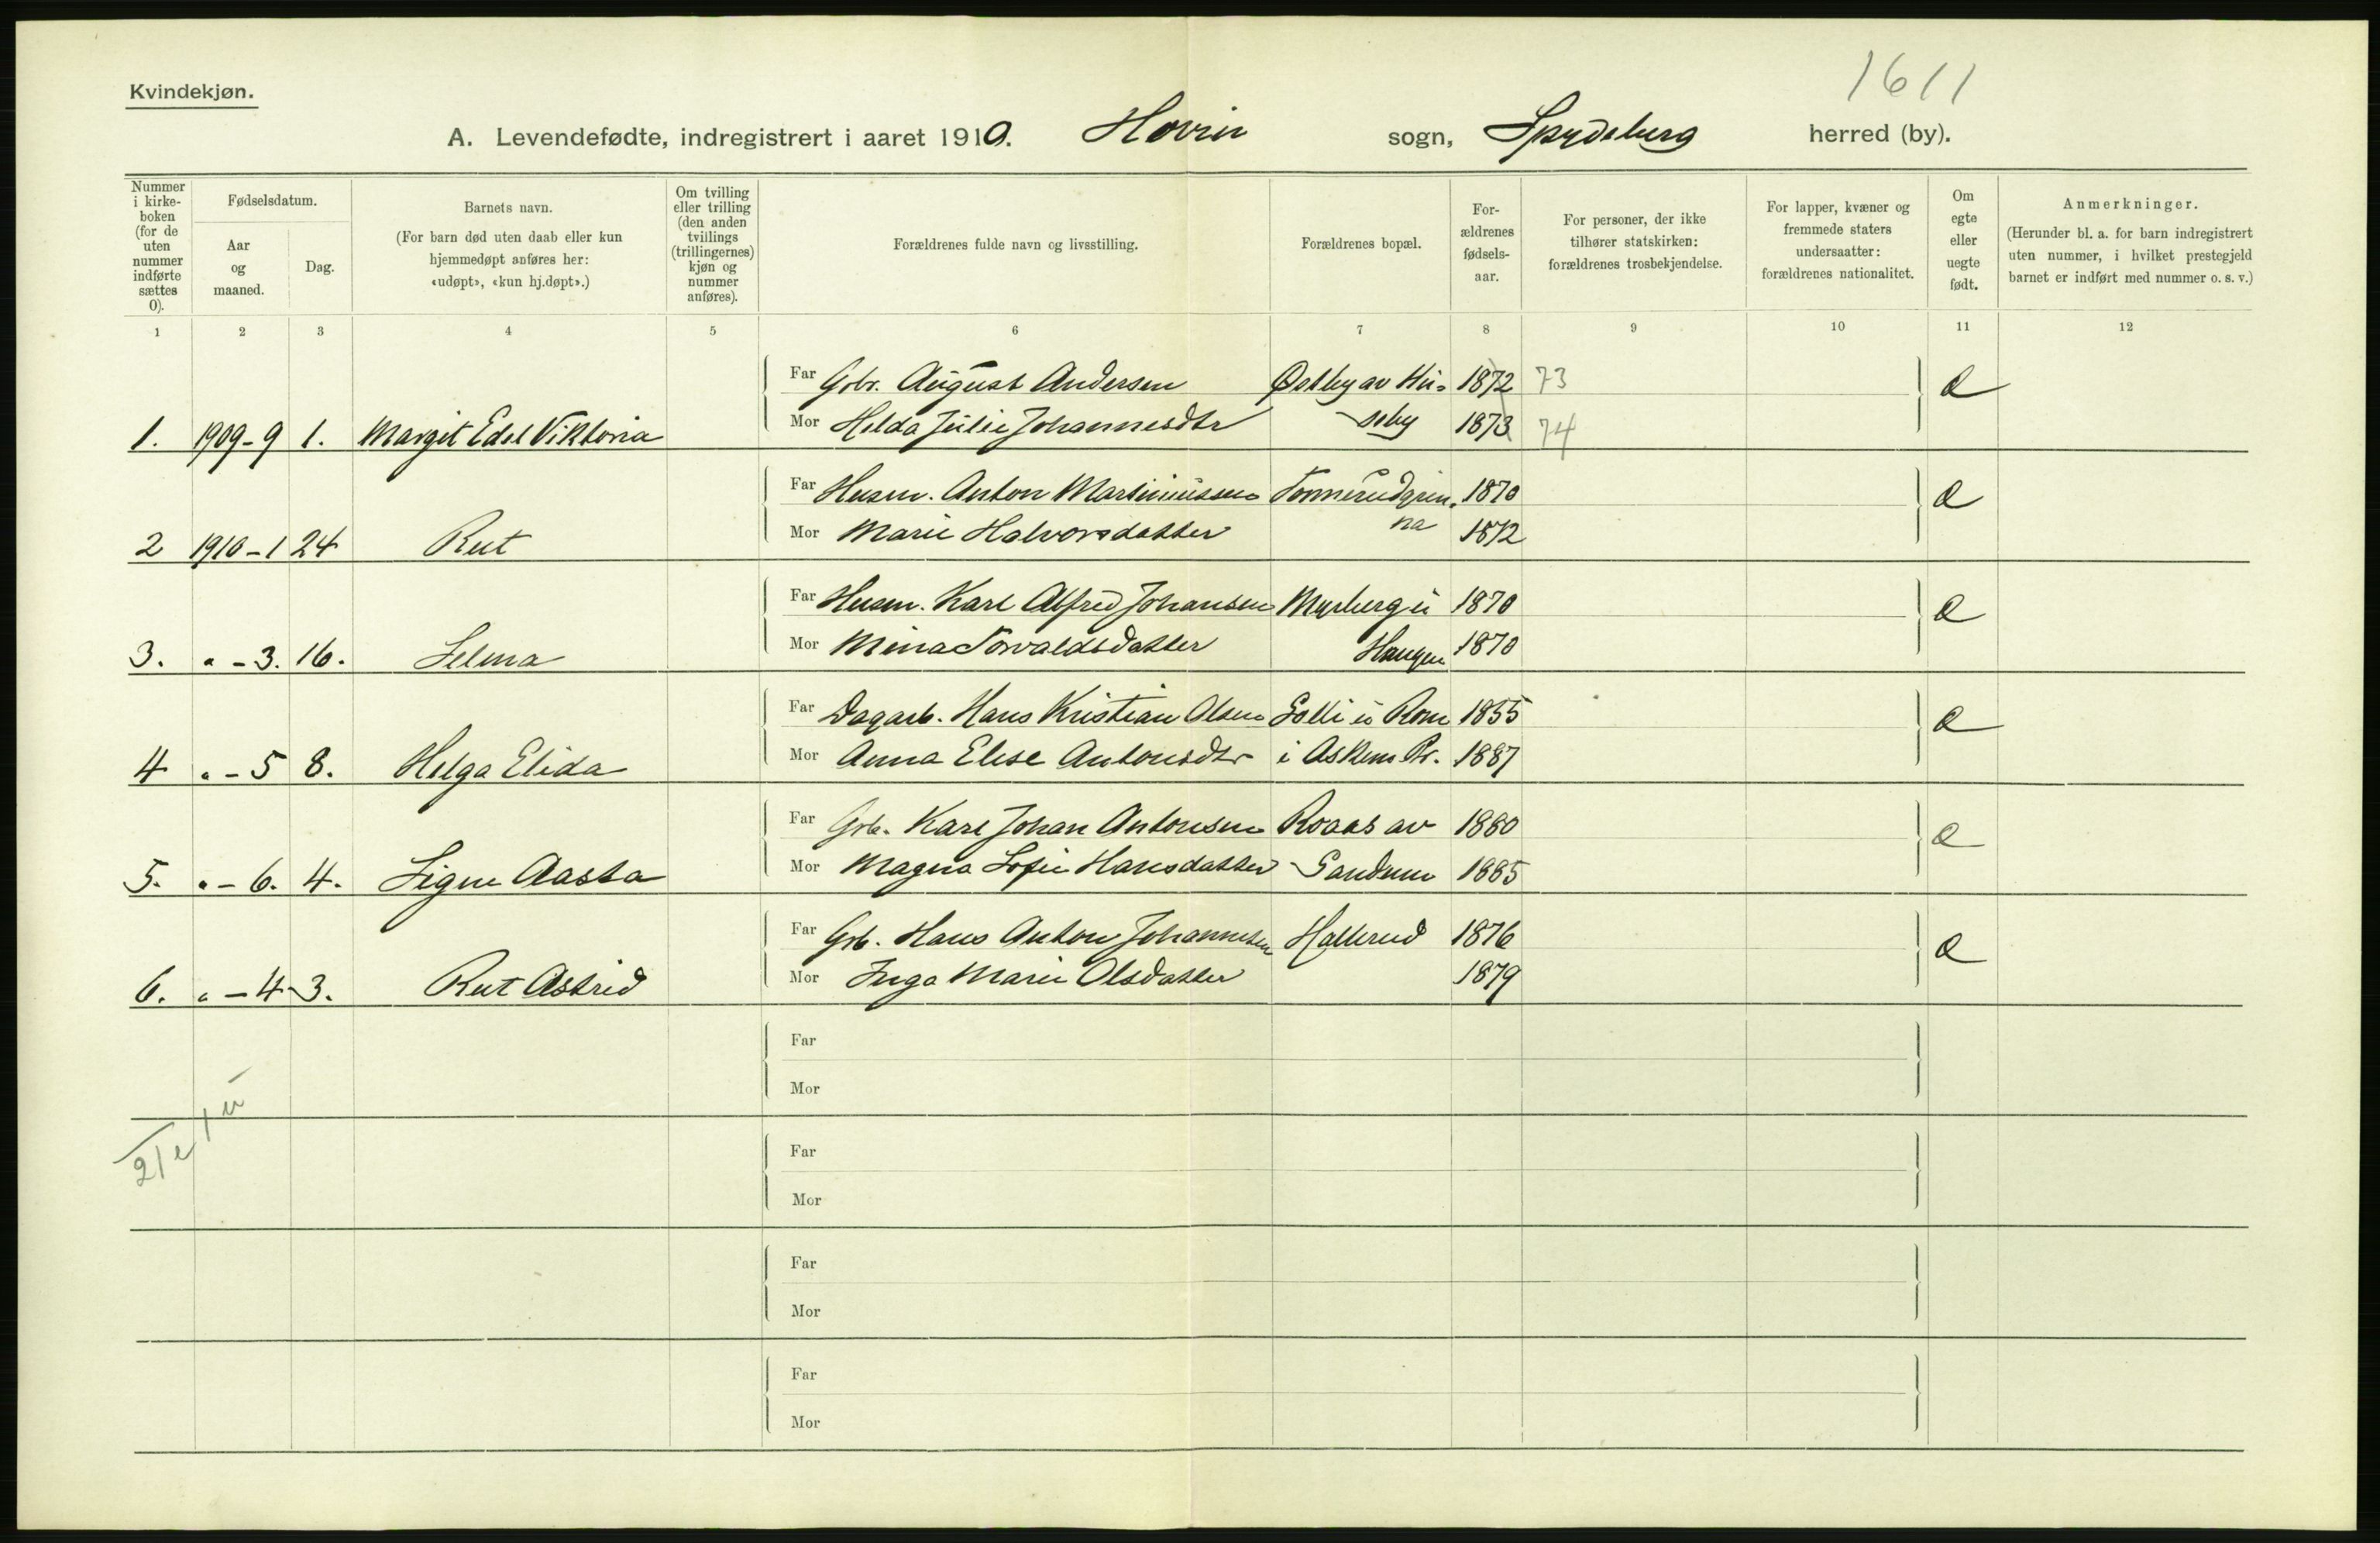 1611
Kvindekjøn.
A. Levendefødte, indregistrert i aaret 1910. Hovin sogn, Spydeberg herred (by).
Nummer i kirke- boken (for de uten nummer indførte sættes 0).
Fødselsdatum.
Aar og maaned.
Dag.
Barnets navn.
(For barn død uten daab eller kun hjemmedøpt anføres her: «udøpt», «kun hj.døpt».)
Om tvilling eller trilling (den anden tvillings (trillingernes) kjøn og nummer anføres).
Forældrenes fulde navn og livsstilling.
Forældrenes bopæl.
For- ældrenes fødsels- aar.
For personer, der ikke tilhører statskirken: forældrenes trosbekjendelse.
For lapper, kvæner og fremmede staters undersaatter: forældrenes nationalitet.
Om egte eller uegte født.
Anmerkninger.
(Herunder bl. a. for barn indregistrert uten nummer, i hvilket prestegjeld barnet er indført med nummer o. s. v.)
1 2 3 4 5 6 7 8 9 10 11 12
Far Gbr. August Andersen Østby av Hu- 1872 73 e
1. 1909-9 1. Margit Edel Viktoria Mor Helda Julie Johannesdtr seby 1873 74
Far Husm. Anton Martiniussen Tonnerudgren- 1870 e
2 1910-1 24 Rut Mor Marie Halvorsdatter na 1872
Far Husm. Karl Alfred Johansen Myrberg u 1870 e
3. " - 3. 16. Selma Mor Mina Torvaldsdatter Haugen 1870
Far Dagarb. Hans Kristian Olsen Solli u Rom 1855 e
4 " - 5 8. Helga Elida Mor Anna Elise Antonsdtr i Askim Pr. 1887
Far Grb. Karl Johan Antonsen Roaas av 1880 e
5. " - 6. 4. Signe Aasta Mor Magna Sofie Hansdatter Sandum 1885
Far Grb. Hans Anton Johannesen Hallerud 1876 e
6. " - 4 3. Rut Astrid Mor Inga Marie Olsdatter 1879
Far
Mor
Far
Mor
Far
Mor
Far
Mor